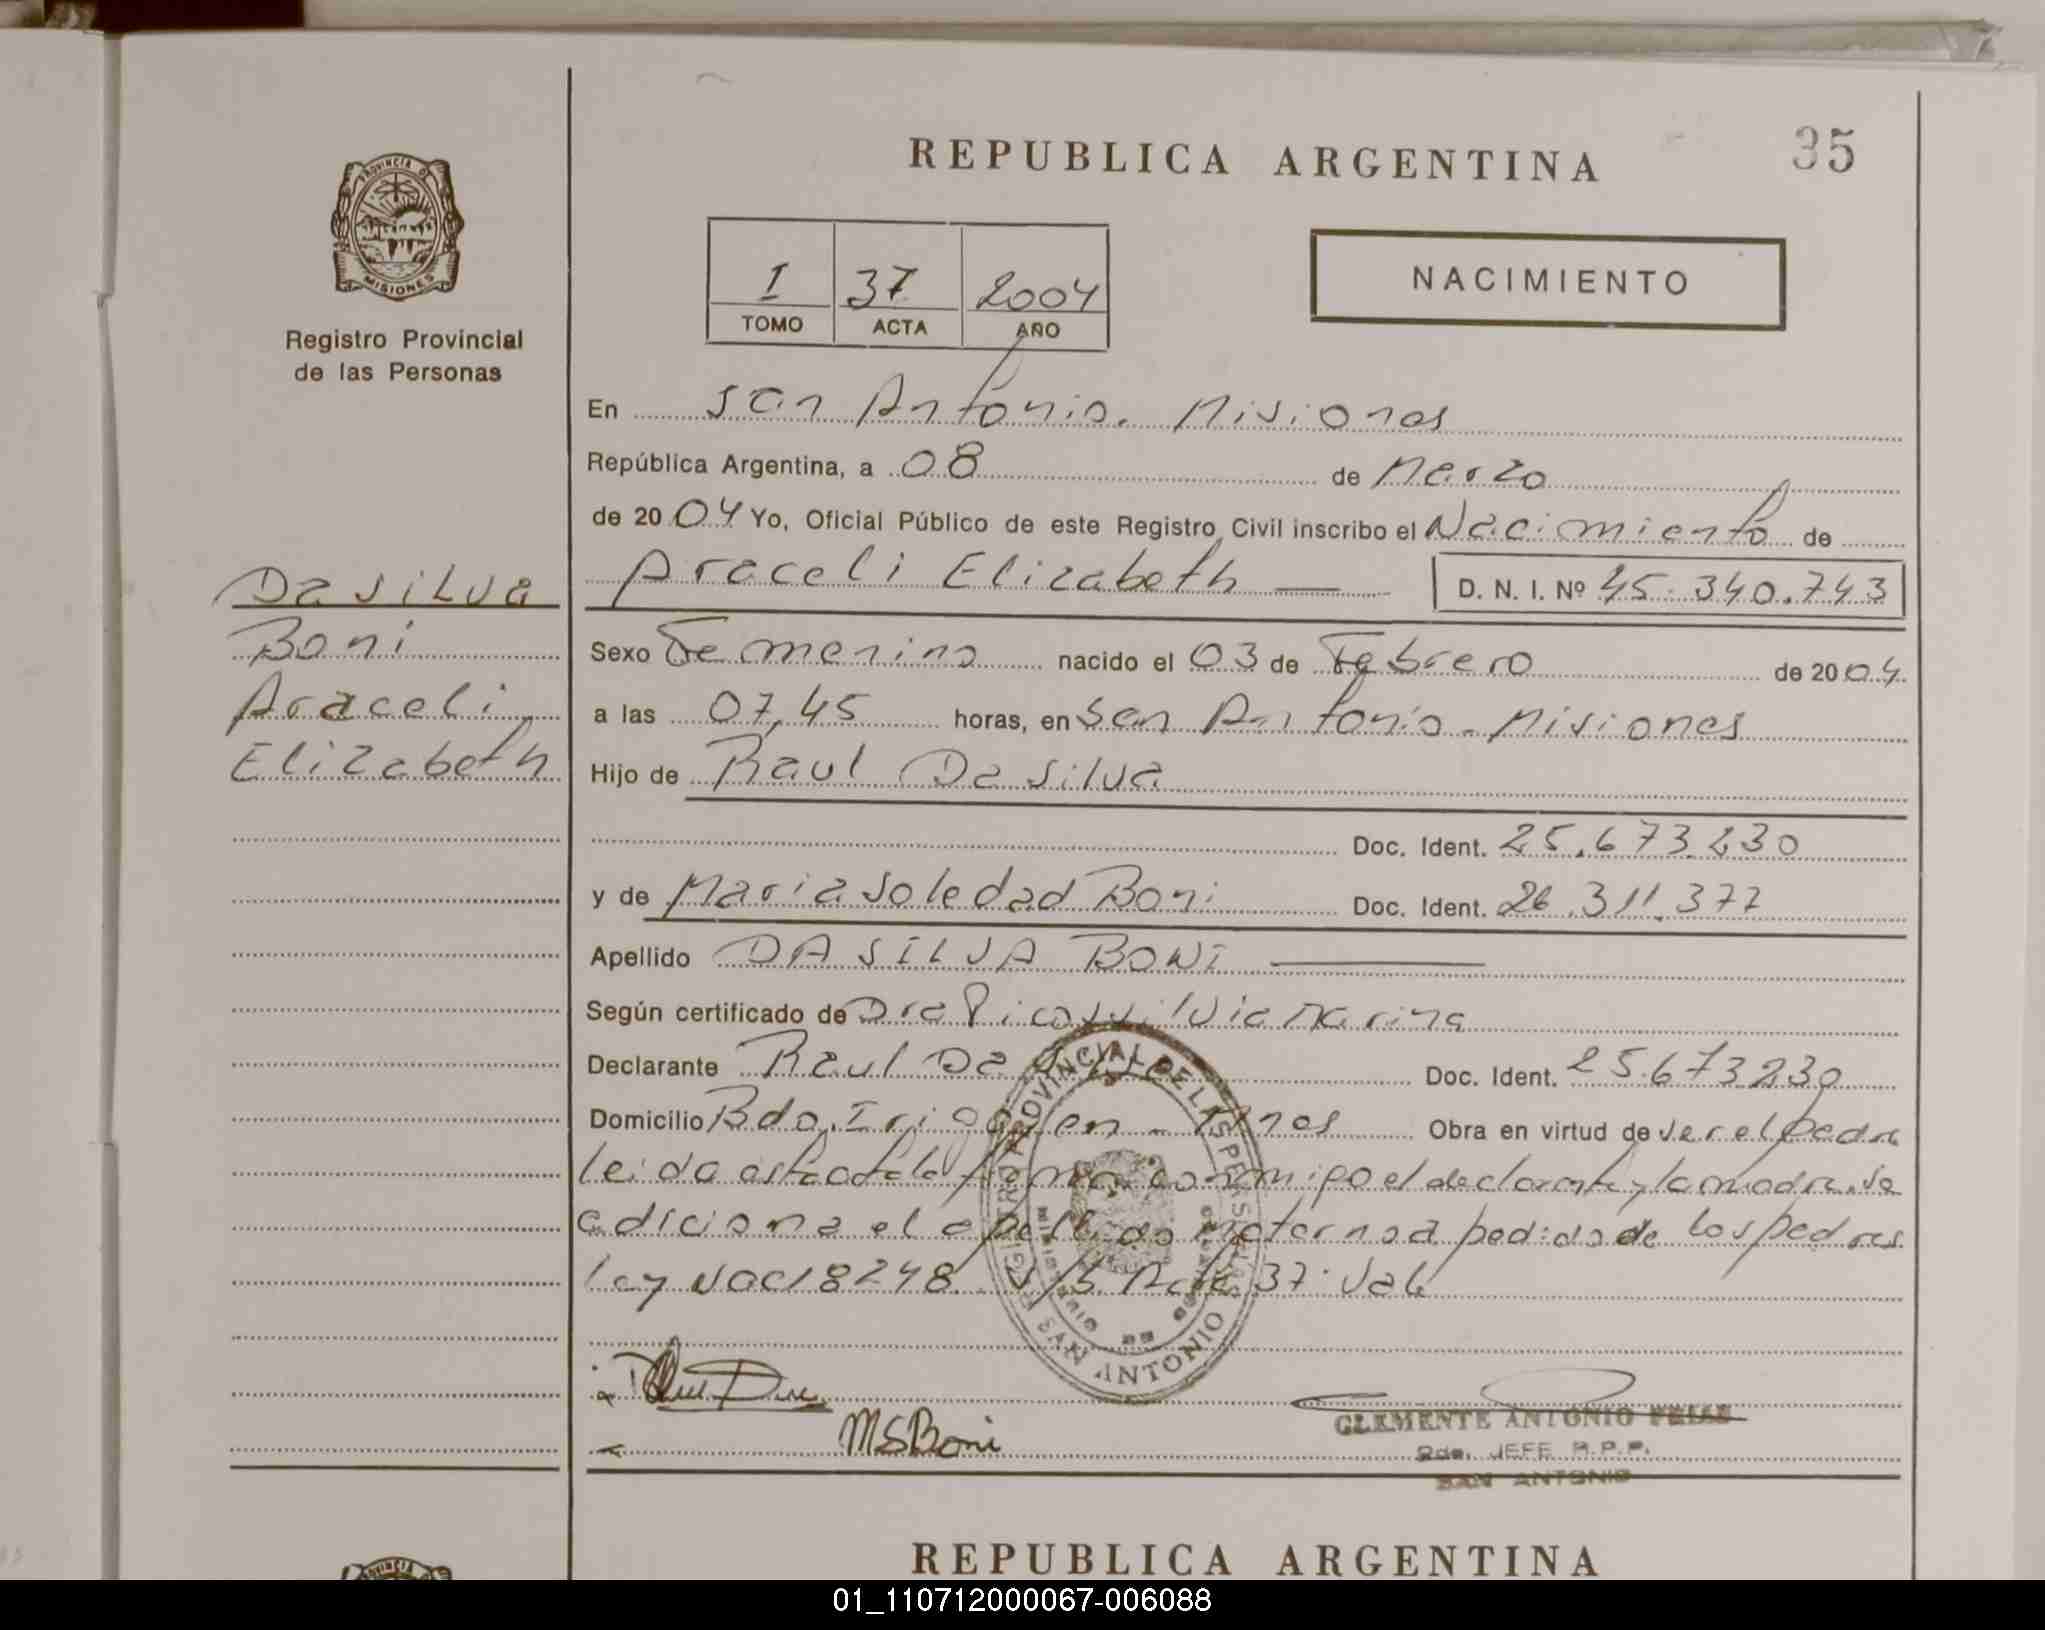 REPUBLICA ARGENTINA
35
PROVINCIA DE
MISIONES
Registro Provincial
de las Personas
I 37 2004
TOMO ACTA AÑO
NACIMIENTO
En San Antonio. Misiones
República Argentina, a 08 de Marzo
de 2004 Yo, Oficial Público de este Registro Civil inscribo el Nacimiento de
Araceli Elizabeth — D. N. I. Nº 45.340.743
Da Silva
Boni
Araceli
Elizabeth
Sexo Femenino nacido el 03 de Febrero de 2004
a las 07,45 horas, en San Antonio. Misiones
Hijo de Raul Da Silva
Doc. Ident. 25.673.230
y de Maria Soledad Boni Doc. Ident. 26.311.377
Apellido DA SILVA BONI
Según certificado de Dra Picos Silvia Marina
Declarante Raul Da Doc. Ident. 25.673.230
Domicilio Bdo. Irigoyen - Mnes Obra en virtud de ser el padre
leida esta acta la firma conmigo el declarante y la madre. Se
adiciona el apellido materno a pedido de los padres
Ley Nac 18248. S/b. Acta. 37. Vale
REGISTRO PROVINCIAL DE LAS PERSONAS
SAN ANTONIO
MSBoni
CLEMENTE ANTONIO FRIAS
JEFE R.P.P.
SAN ANTONIO
REPUBLICA ARGENTINA
01_110712000067-006088